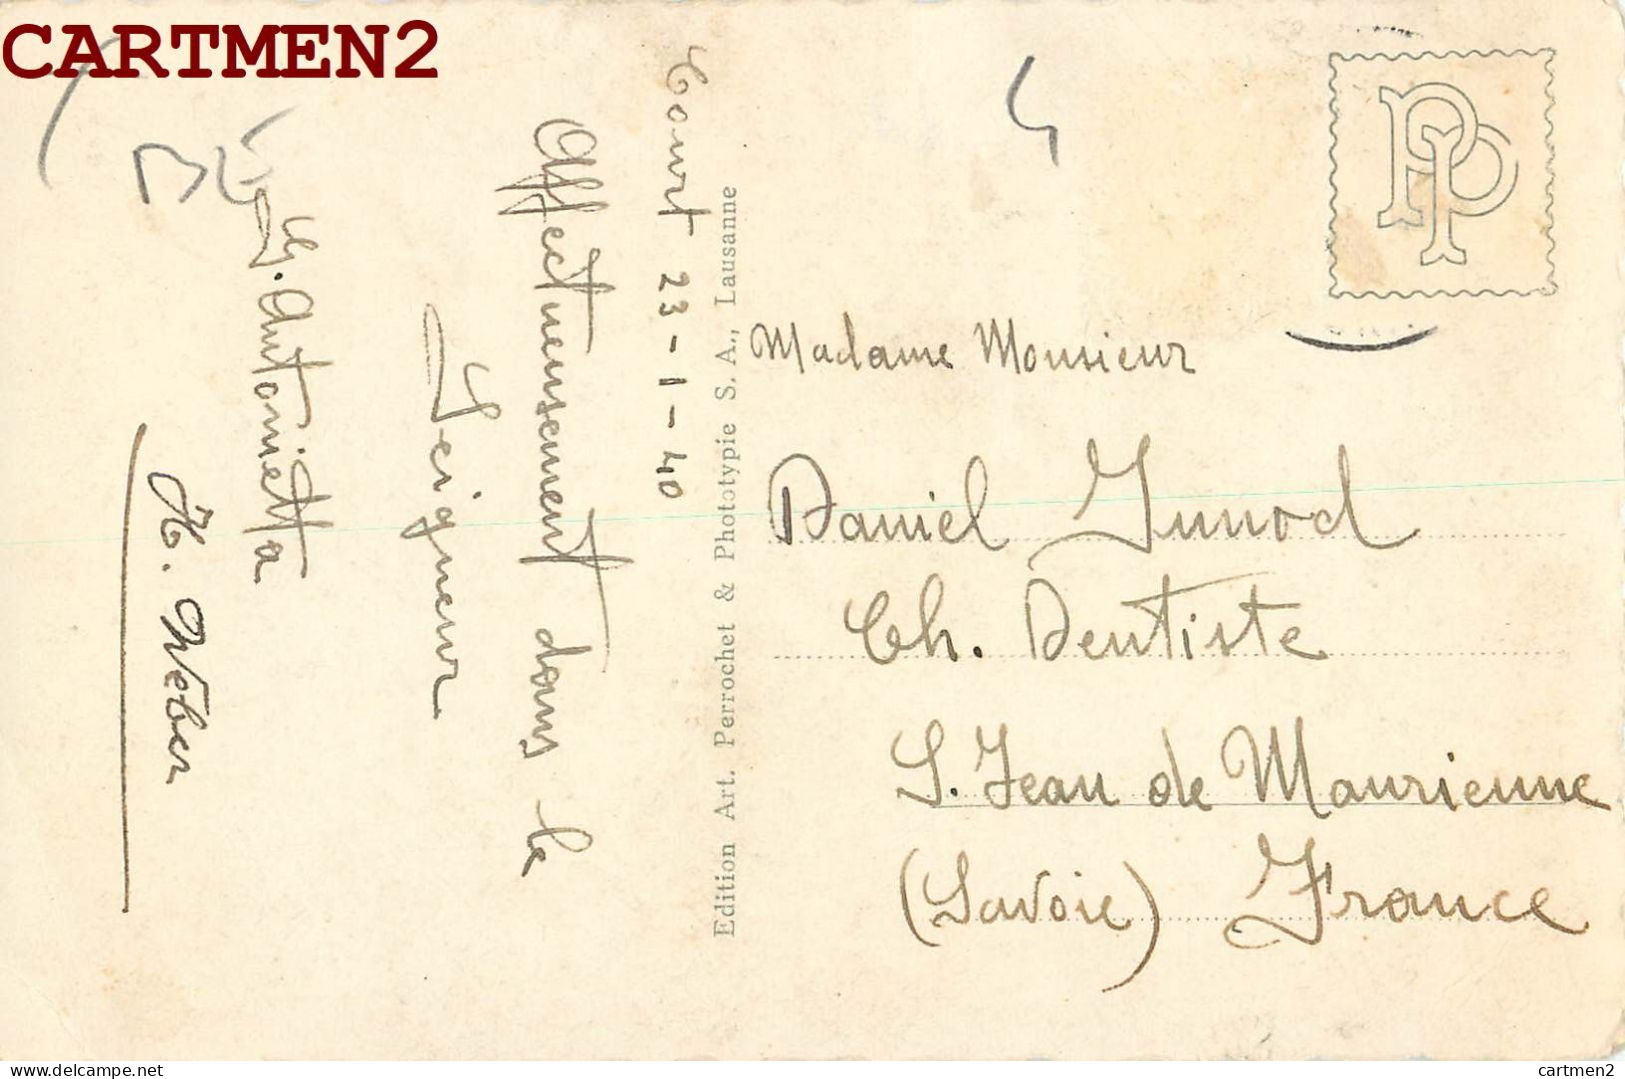 CARTMEN2
Court 23-1-40
Affectueusement dans le
Seigneur
Antonietta
H. Weber
Edition Art. Perrochet & Phototypie S. A., Lausanne
Madame Monsieur
Daniel Junod
Ch. Dentiste
S. Jean de Maurienne
(Savoie) France
cartmen2
cartmen2